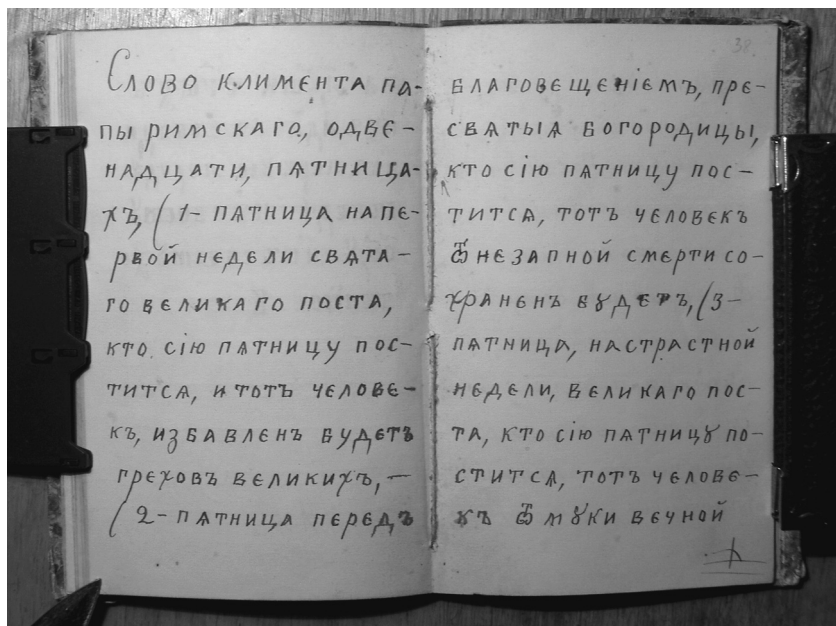 Слово климєнта па-
пы римскаго, одвє-
надцати, пѧтница-
хъ, (1- пѧтница напє-
рвой нєдєли свѧта-
го вєликаго поста,
кто сію пѧтницу пос-
титсѧ, и тотъ чєловє-
къ, избавлєнъ будєтъ
грєховъ вєликихъ, —
(2- пѧтница пєрєдъ
38.
благовєщєніємъ, прє-
свѧтыѧ богородицы,
кто сію пѧтницу пос-
титсѧ, тотъ чєловєкъ
ѿ нєзапной смєрти со-
хранєнъ бꙋдєтъ, (3-
пѧтница, настрастной
нєдєли, вєликаго пос-
та, кто сію пѧтницꙋ по-
ститсѧ, тотъ чєловє-
къ ѿ мꙋки вєчной